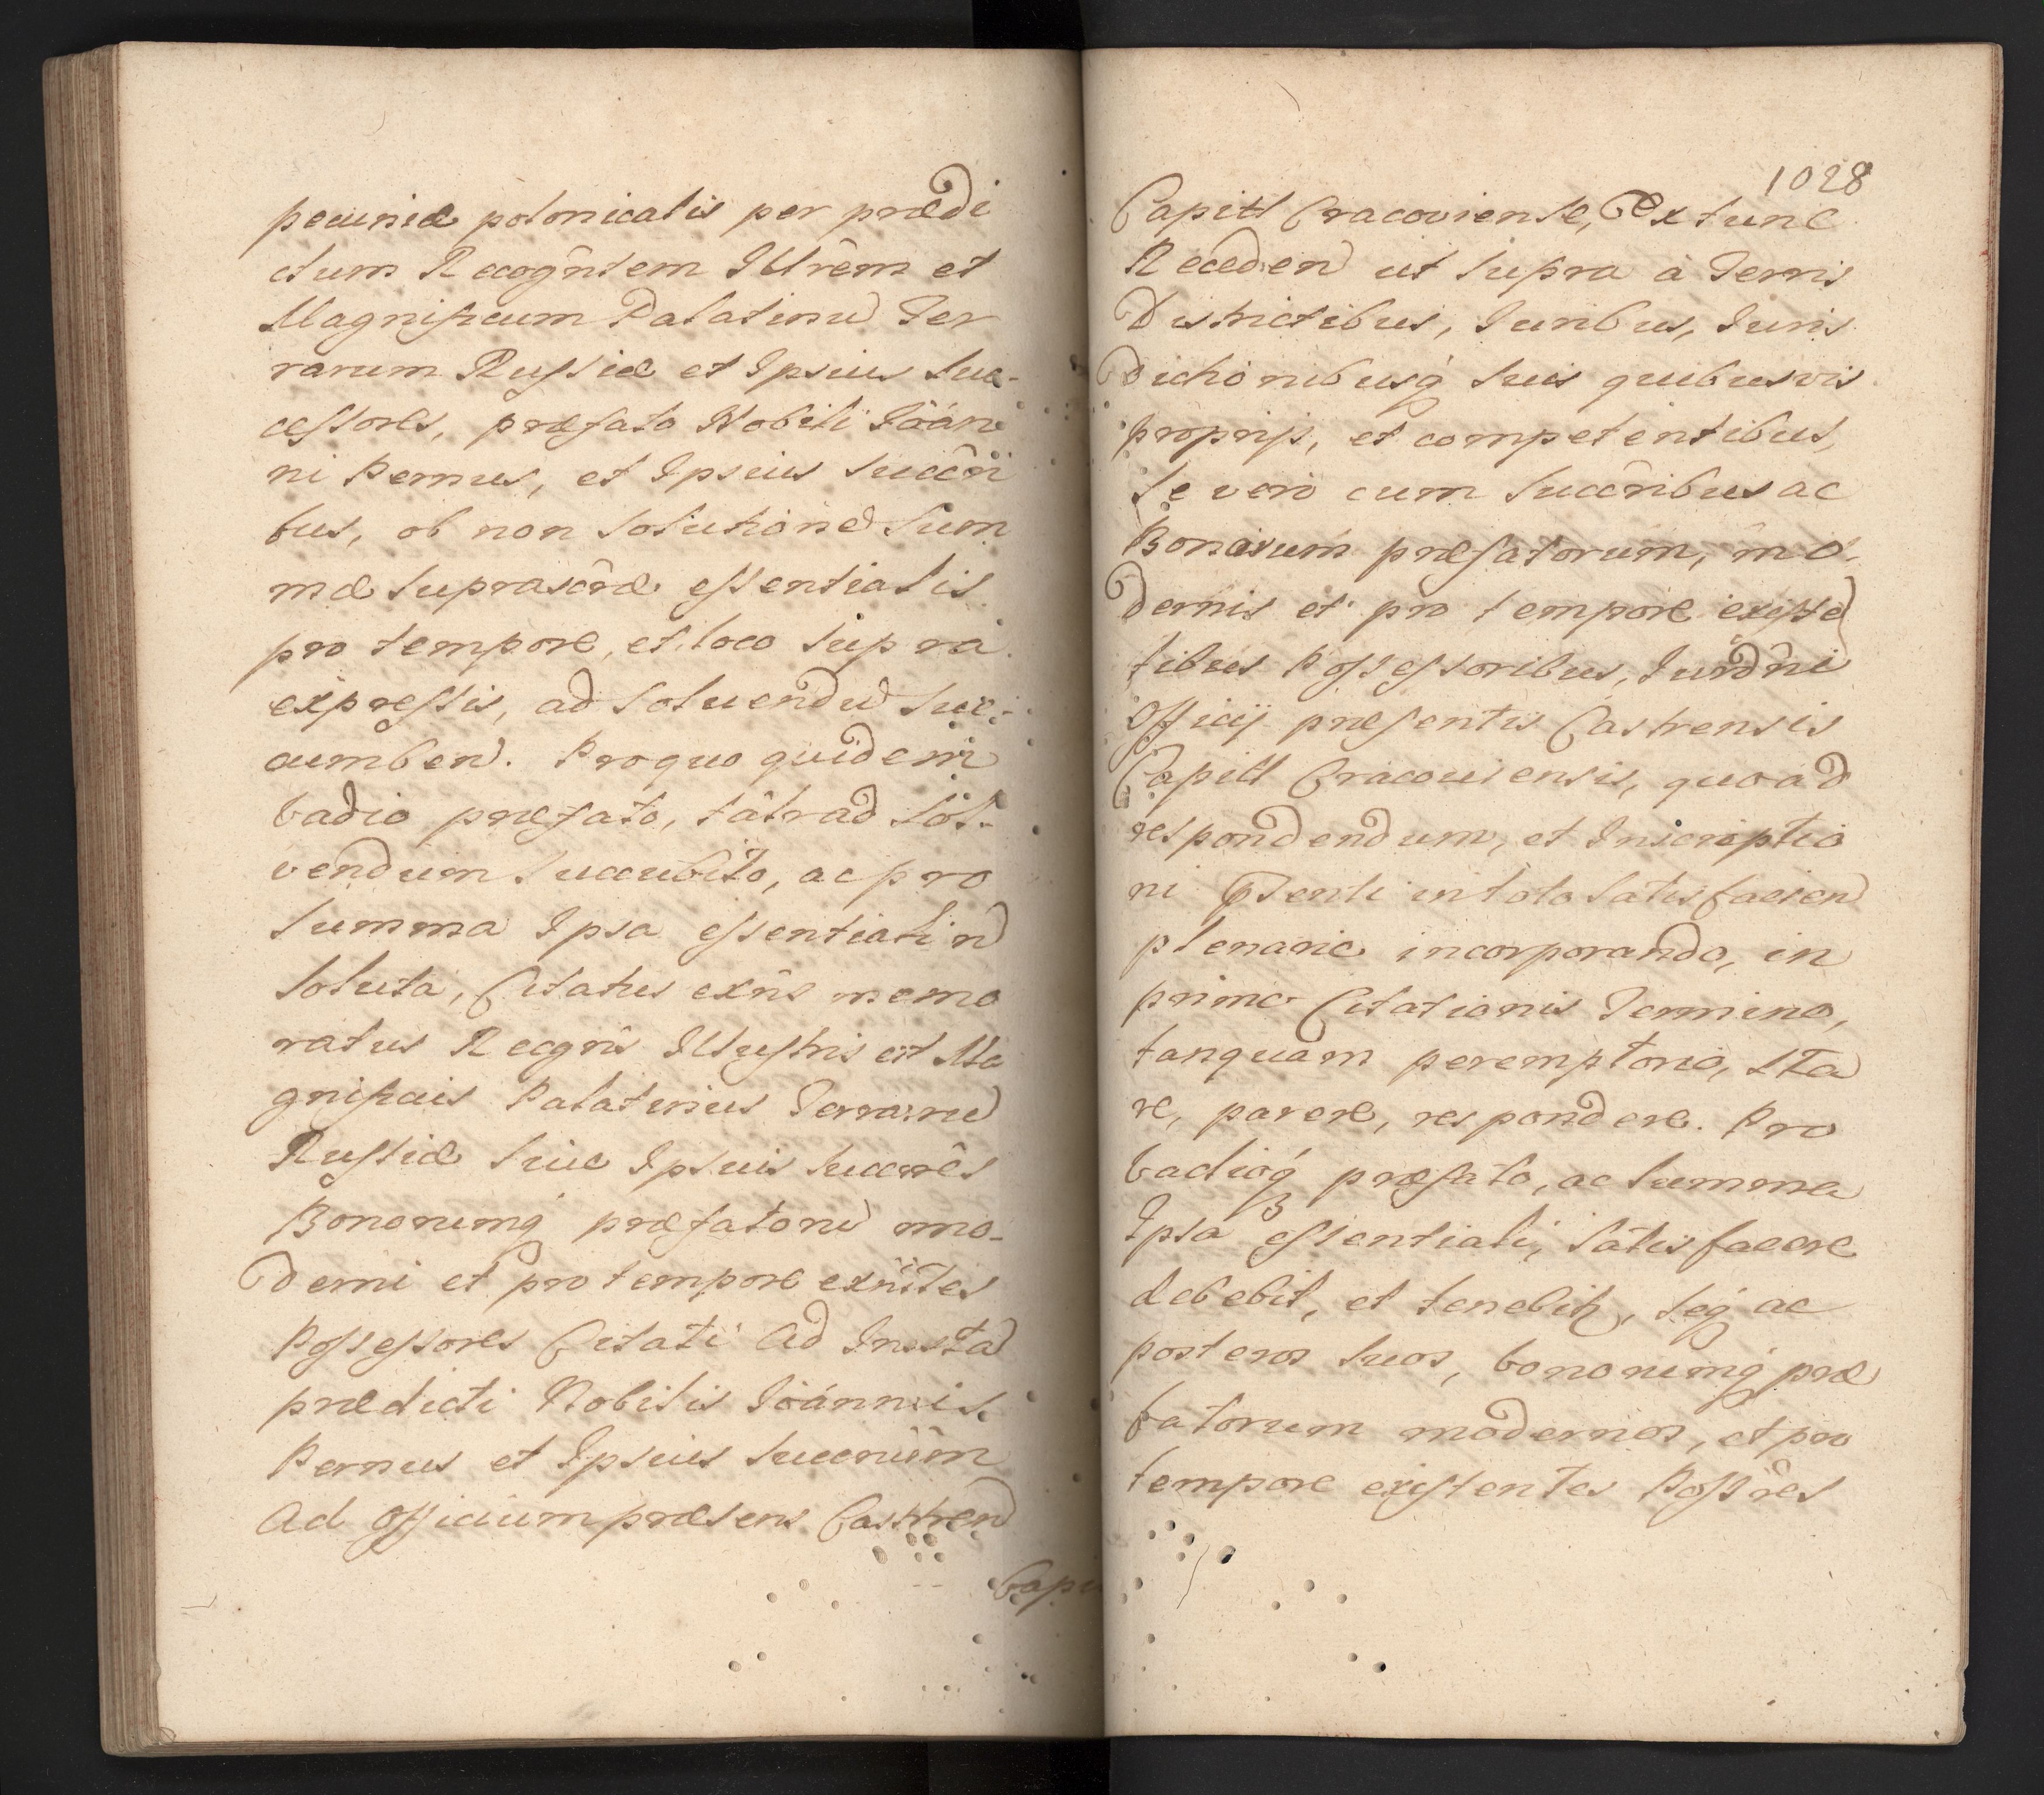 pecuniæ polonicalis per prædi
ctum Recogñtem Illrêm et
Magnificum Palatinũ Ter
rarum Russiæ et Ipsius suc-
cessores, præfato Nobili Joán
ni Pernus, et Ipsius succôri
bus, ob non solutionẽ sum
mæ suprascræ essentialis
pro tempore, et loco supra
expressis, ad soluendũ suc-
cumben. Pro quo quidem
vadio præfato, tâlr ad sol-
vendum succubito, ac pro
summa Ipsa essentiali ñ
soluta, Citatus exñs memo
ratus Recgñs Illustris et Ma
gnificus Palatinus Terrarũ
Russiæ siue Ipsius succrês
Bonorumq præfatorũ mo-
derni et pro tempore exñtes
Possessores Citati ad Instã
prædicti Nobilis Joánnis
Pernus et Ipsius succrium
Ad Officium præsens Castren
Capit
1028
Capitl Cracoviense, Extunc
Receden ut supra à Terris
Districtibus, Juribus, Juris
dictionibusq suis quibusvis
proprijs, et competentibus,
se vero cum succribus ac
Bonorum præfatorum, mo-
dernis et pro tempore existẽ
tibus Possessoribus, Jurdñi
Officij præsentis Castrensis
Capitl Cracouiensis, quoad
respondendum, et Inscriptio
ni pñsenti in toto satisfacien
plenarie incorporando, in
primo Citationis Termino,
tanquam peremptorio, sta
re, parere, respondere. Pro
vadioq præfato, ac summa
Ipsa essentiali, satisfacere
debebit, et tenebitr, seq ac
posteros suos, bonorumq præ
fatorum modernos, et pro
tempore existentes Possres